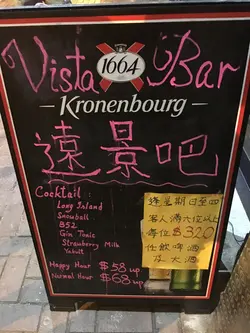 Vista Bar
1664
Kronenbourg
遠景吧
Cocktail :
Long Island
Snowball
B52
Gin Tonic
Strawberry Milk
Yakult
Happy Hour $58 up
Normal Hour $68 up
逢星期日至四
客人滿六位以上
每位$320
任飲啤酒
及大酒